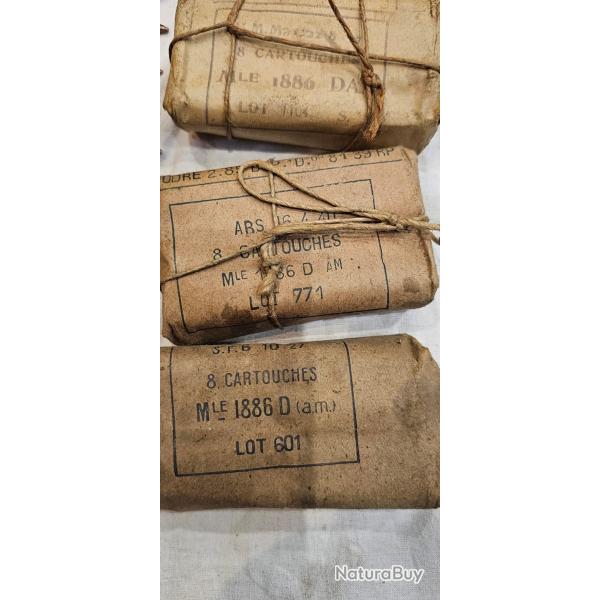 8 CARTOUCHES
MLE 1886 DA
LOT
ABS 16.4.40
8 CARTOUCHES
MLE 1886 D AM
LOT 771
S.F.B 10 27
8 CARTOUCHES
MLE 1886 D (a.m.)
LOT 601
NaturaBuy